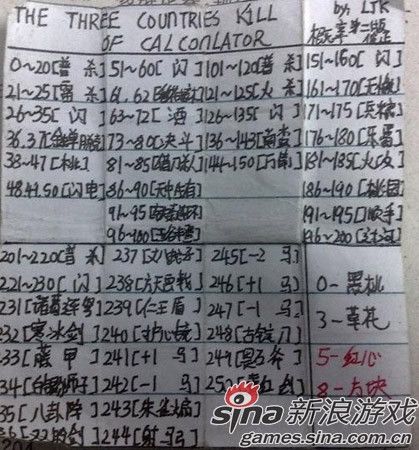 THE THREE COUNTRIES KILL
OF CALCONLATOR
by: LJK
0~20[普 杀]
21~25[雷 杀]
26~35[ 闪 ]
38~47[ 桃 ]
48.49.50[闪电]
51~60[ 闪 ]
63~72[ 酒 ]
73~80[决斗]
81~85[借刀杀人]
86~90[无中生有]
96~100[五谷丰登]
101~120[普杀]
121~125[火 杀]
126~135[ 闪 ]
136~143[南蛮]
144~150[万箭]
151~160[ 闪 ]
161~170[无懈]
171~175[兵粮]
176~180[乐蜀]
181~185[火攻]
186~190[桃园]
191~195[顺手]
196~200[过河]
201~220[普 杀]
221~230[ 闪 ]
231[诸葛连弩]
232[寒冰剑]
233[藤 甲]
234[白银狮子]
235[八卦阵]
237[丈八蛇矛]
238[方天画戟]
239[仁王盾]
241[+1 马]
242[-1 马]
243[朱雀扇]
245[-2 马]
246[+1 马]
247[-1 马]
248[古锭刀]
0-黑桃
3-草花
5-红心
8-方块
sina新浪游戏
games.sina.com.cn